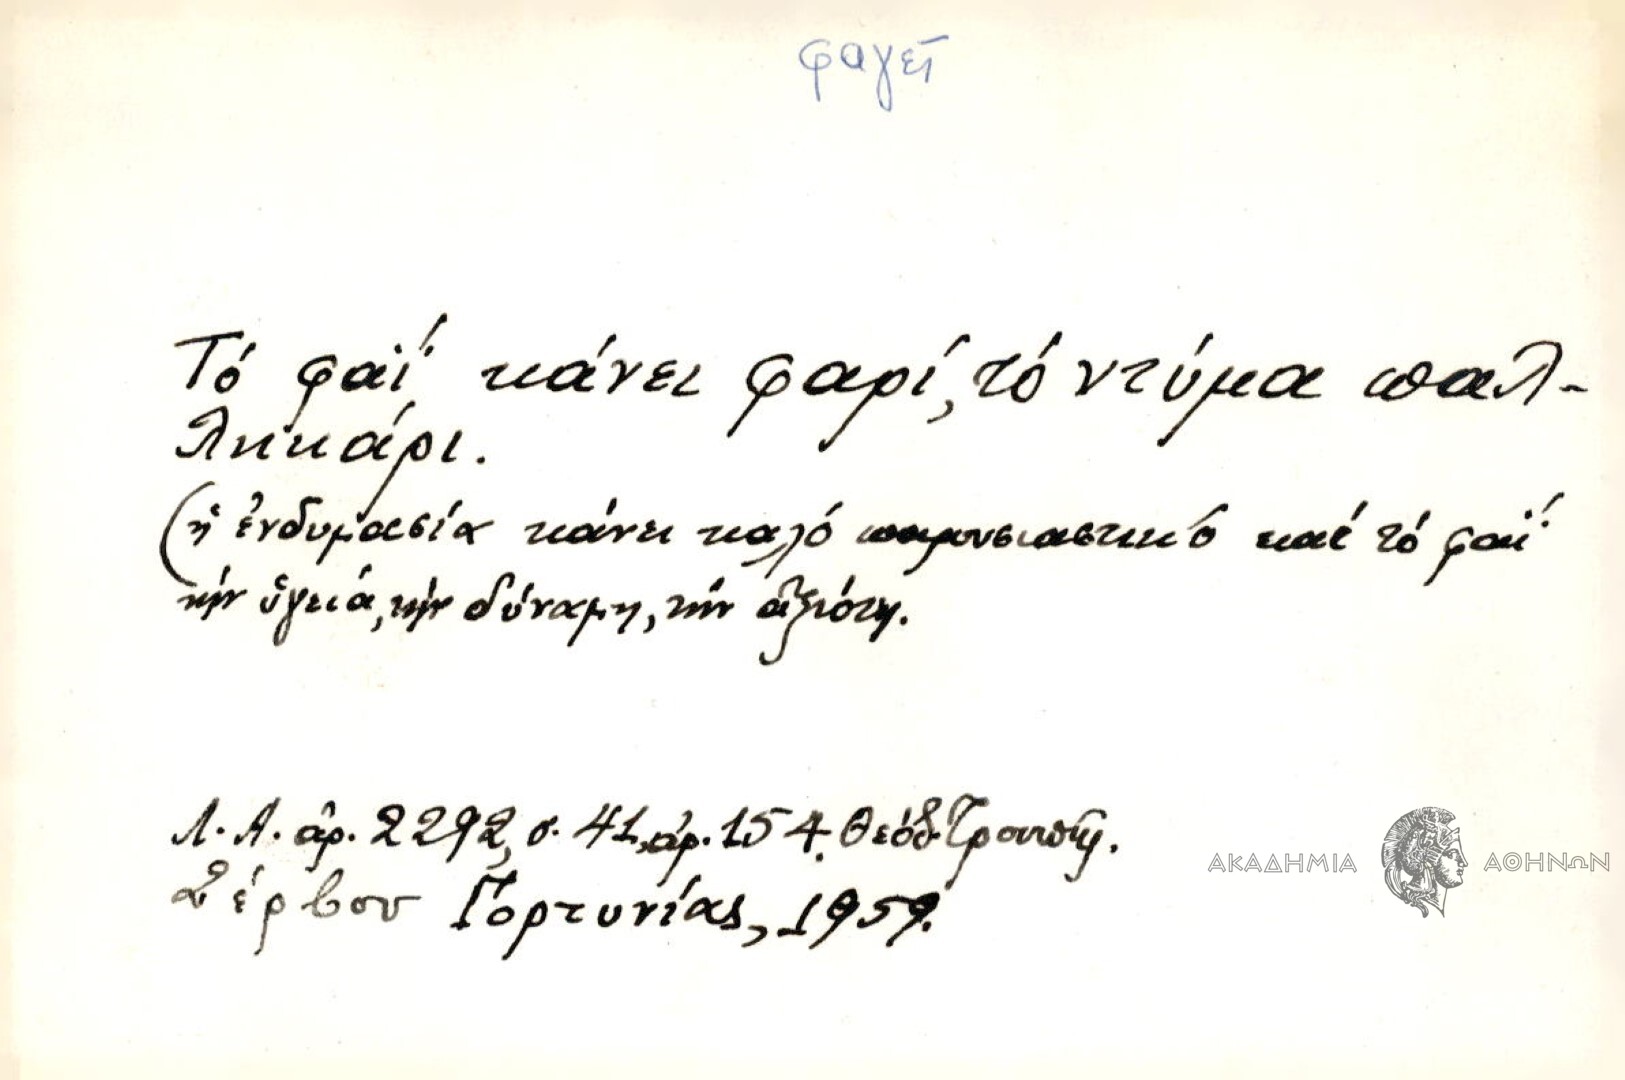 φαγεῖ
Τό φαΐ κάνει φαρί, τό ντύμα παλ-
ληκάρι.
(ἡ ἐνδυμασία κάνει καλό παρουσιαστικό καί τό φαΐ
τήν ὑγειά, τήν δύναμη, τήν ἀξιότη.
Λ.Α. ἀρ. 2292, σ. 41, ἀρ. 154. Θεόδ. Τρουπῆ.
Σέρβου Γορτυνίας, 1959.
ΑΚΑΔΗΜΙΑ ΑΘΗΝΩΝ